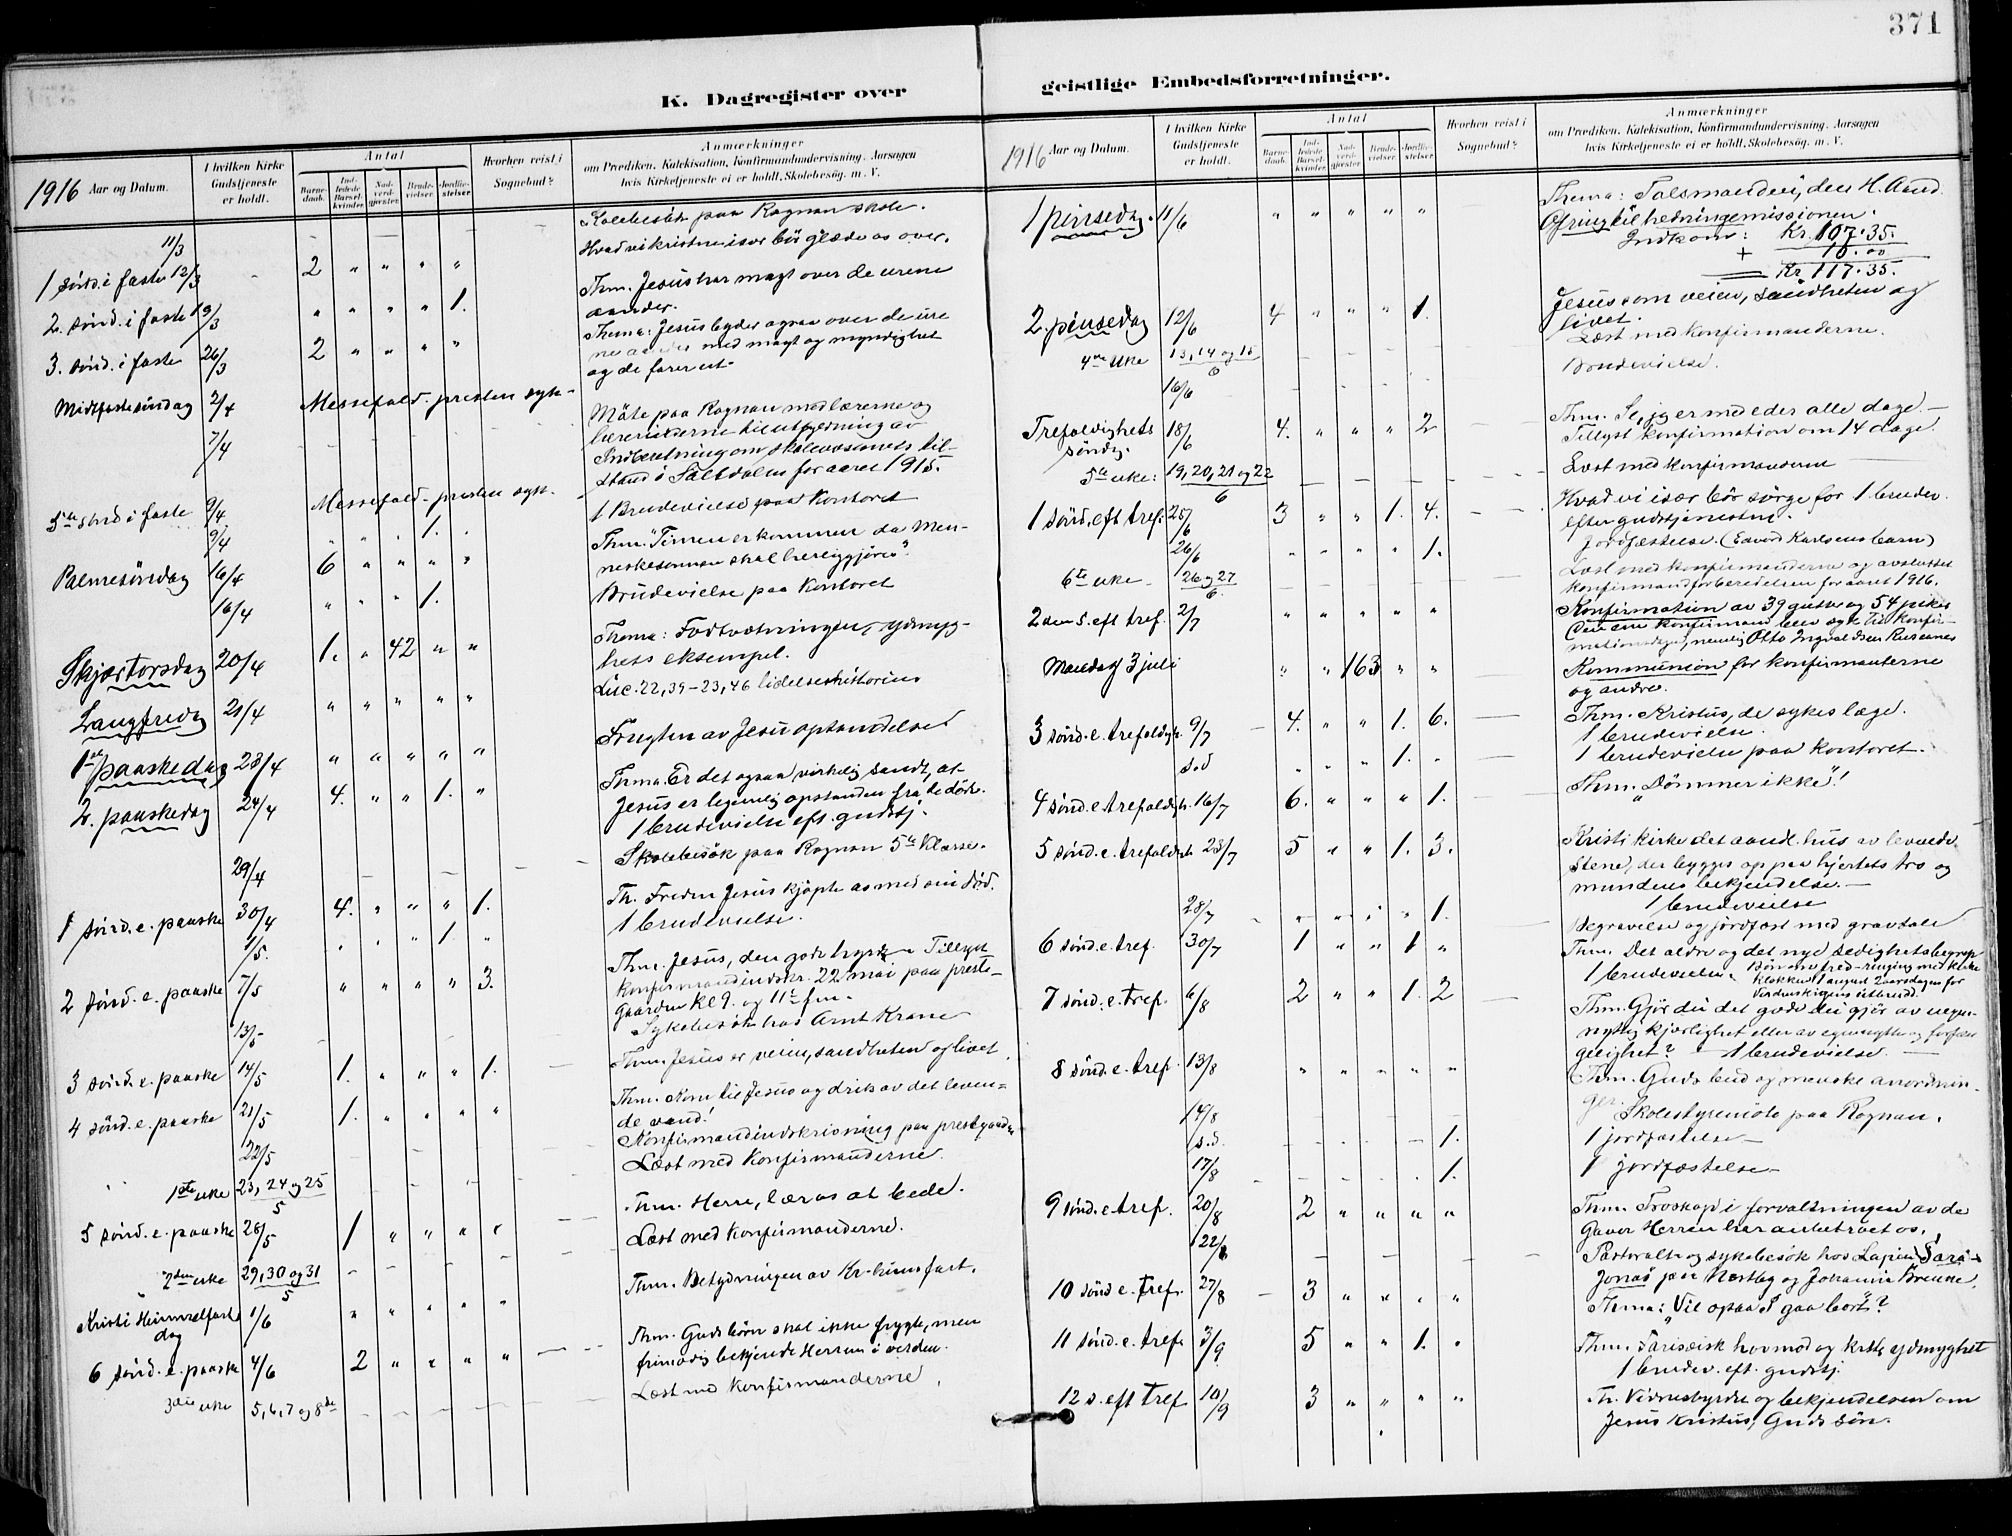 371
K. Dagregister over
geistlige Embedsforretninger.
1916 Aar og Datum.
I hvilken Kirke Gudstjeneste er holdt.
Antal
Barnedaab.
Indledede Barselkvinder.
Nadverdgjester.
Brudevielser.
Jordfæstelser.
Hvorhen reist i Sognebud?
Anmærkninger
om Prædiken, Katekisation, Konfirmandundervisning. Aarsagen
hvis Kirketjeneste ei er holdt. Skolebesøg. m. V.
11/3 Skolebesök paa Rognan skole.
1 sönd. i faste 12/3 2 " " " " Hvad vi kristne især bör glæde os over.
2. sönd. i faste 19/3 " " " " 1. Thm. Jesus har magt over de urene
aander.
3. sönd. i faste 26/3 2 " " " " Thema: Jesus byder ogsaa over de ure
ne aander med magt og myndighet
og de farer ut.
Midtfastesöndag 2/4 Messefald. presten syk.
7/4 Möte paa Rognan med lærerne og
lærerinderne til utfyldning av
Indberetning om skolevæsenets til-
stand i Saltdalen for aaret 1915.
5te sönd i faste 9/4 Messefald - presten syk.
9/4 1. 1 Brudevielse paa Kontoret
Palmesöndag 16/4 6 " " " " Thm. "Timen er kommen da Men-
neskesönnen skal herliggjöres."
16/4 " " " 1. Brudevielse paa Kontoret
Skjærtorsdag 20/4 1. " 42 " " Thema: Fodtvætningen, ydmyg-
hets eksempel.
Langfredag 21/4 " " " " " Luc. 22,39-23,46 lidelseshistorien
1ste paaskedag 23/4 " " " " " Frugten av Jesu opstandelse
2. paaskedag 24/4 4. " " 1. " Thema Er det ogsaa virkelig sandt, at
Jesus er legemlig opstanden fra de döde.
1 brudevielse eft. gudstj.
29/4 Skolebesök paa Rognan 5te Klasse.
1 sönd. e. paaske 30/4 4. " " " 1. Th. Freden Jesus kjöpte os med sin död.
1/5. " " " 1. " 1 brudevielse.
2 sönd. e. paaske 7/5 " " " " 3. Thm. Jesus, den gode hyrde Tillyst
konfirmandindskr. 22 mai paa preste-
gaarden kl 9. og 11 fm.
13/5 Sykebesök hos Arnt Krane
3 sönd. e. paaske 14/5 1. " " " 1. Thm. Jesus er veien, sandheten og livet
4 sönd. e. paaske 21/5 1. " " " " Thm. Kom til Jesus og drik av det leven-
de vand!
22/5 Konfirmandindskrivning paa prestegaarden
1ste uke 23, 24 og 25/5 Læst med Konfirmanderne.
5 sönd. e. paaske 28/5 1 " " " " Thm. Herre, lær os at bede.
2den uke 29, 30 og 31/5 Læst med Konfirmanderne.
Kristi Himmelfarts
dag 1/6 " " " " " Thm. Betydningen av Kr. himmelfart.
6 sönd. e. paaske 4/6 2 " " " " Thm. Guds börn skal ikke frygte, men
frimodig bekjende Herren i verden.
3die uke 5, 6, 7 og 8de Læst med Konfirmanderne.
1916 Aar og Datum.
I hvilken Kirke Gudstjeneste er holdt.
Antal
Barnedaab.
Indledede Barselkvinder.
Nadverdgjester.
Brudevielser.
Jordfæstelser.
Hvorhen reist i Sognebud?
Anmærkninger
om Prædiken, Katekisation, Konfirmandundervisning. Aarsagen
hvis Kirketjeneste ei er holdt. Skolebesøg. m. V.
1 pinsedag. 11/6 " " " " " Thema: Talsmanden, den H. Aand.
Ofring til hedningemissionen.
Indkom: Kr. 107.35.
+ 10.00
Kr 117.35.
2. pinsedag 12/6 4 " " " 1. Jesus som veien, sandheten og
livet.
4de uke 13, 14 og 15/6 Læst med konfirmanderne.
16/6 Brudevielse.
Trefoldighets
söndg. 18/6 4. " " " 2 Thm. Se, jeg er med eder alle dage.
Tillyst konfirmation om 14 dage
5te uke: 19, 20, 21 og 22/6 Læst med konfirmanderne
1 sönd. eft tref. 25/6 3 " " 1. 4. Hvad vi især bör sörge for 1 brudev.
efter gudstjenesten.
26/6 " " " " 1. Jordfæstelse. (Edvard Karlsens barn)
6te uke 26 og 27/6. Læst med konfirmanderne og avsluttet
konfirmandforberedelsen for aaret 1916.
2den s. eft tref. 2/7 " " " " " Konfirmation av 39 gutter og 54 piker
En konfirmand blev syk til konfir-
mationsdagen, nemlig Otto Ingvaldsen
Mandag 3 juli " " 163 " " Kommunion for konfirmanterne
og andre.
3 sönd. e. trefoldigh. 9/7 4. " " 1. 6. Thm. Kristus, de sykes læge.
1 brudevielse.
s.d " " " 1. " 1 brudevielse paa kontoret.
4 sönd. e. trefoldigh. 16/7 6. " " " 1. Thm. "Dömmer ikke"!
5 sönd. e. trefoldigh. 23/7 5 " " 1. 3. Kristi kirke det aandl. hus av levende
stene, der bygges op paa hjertets tro og
mundens bekjendelse.
1 brudevielse
28/7 " " " " 1. Begravelse og jordfæst med gravtale
6 sönd. e. tref. 30/7 1 " " 1 " Thm. Det aldre og det nye
1 brudevielse.
Klokken 1 august
7 sönd. e. tref. 6/8 2 " " 1. 2 Thm. Gjör du det gode du gjör av uegen-
nyttig kjærlighet eller av egennytte og forfæn
gelighet? - 1 brudevielse.
8 sönd. e. tref. 13/8 " " " " " Thm. Guds bud og menske anordnin-
ger.
14/8 Skolestyremöte paa Rognan.
s.d. 1. 1 jordfæstelse
17/8 1. 1 jordfæstelse
9 sönd. e. tref. 20/8 2 " " " " Thm. Troskap i forvaltningen av de
Gaver Herren har anbetroet os.
22/8 Pastoralt og sykebesök hos Lapin Sara
Jonas paa Næstby og Johannes Brenne.
10 sönd e. tref. 27/8 3 " " " " Thema: Vil ogsaa I gaa bort?
11 sönd. e. tref. 3/9 5 " " 1. " Thm. Farisæisk hovmod og kristelig ydmyghet
1 brudev. eft. gudstj.
12 s. eft tref 10/9 3 " " " " Th. Vidnesbyrdet og bekjendelsen om
Jesus Kristus, Guds sön.